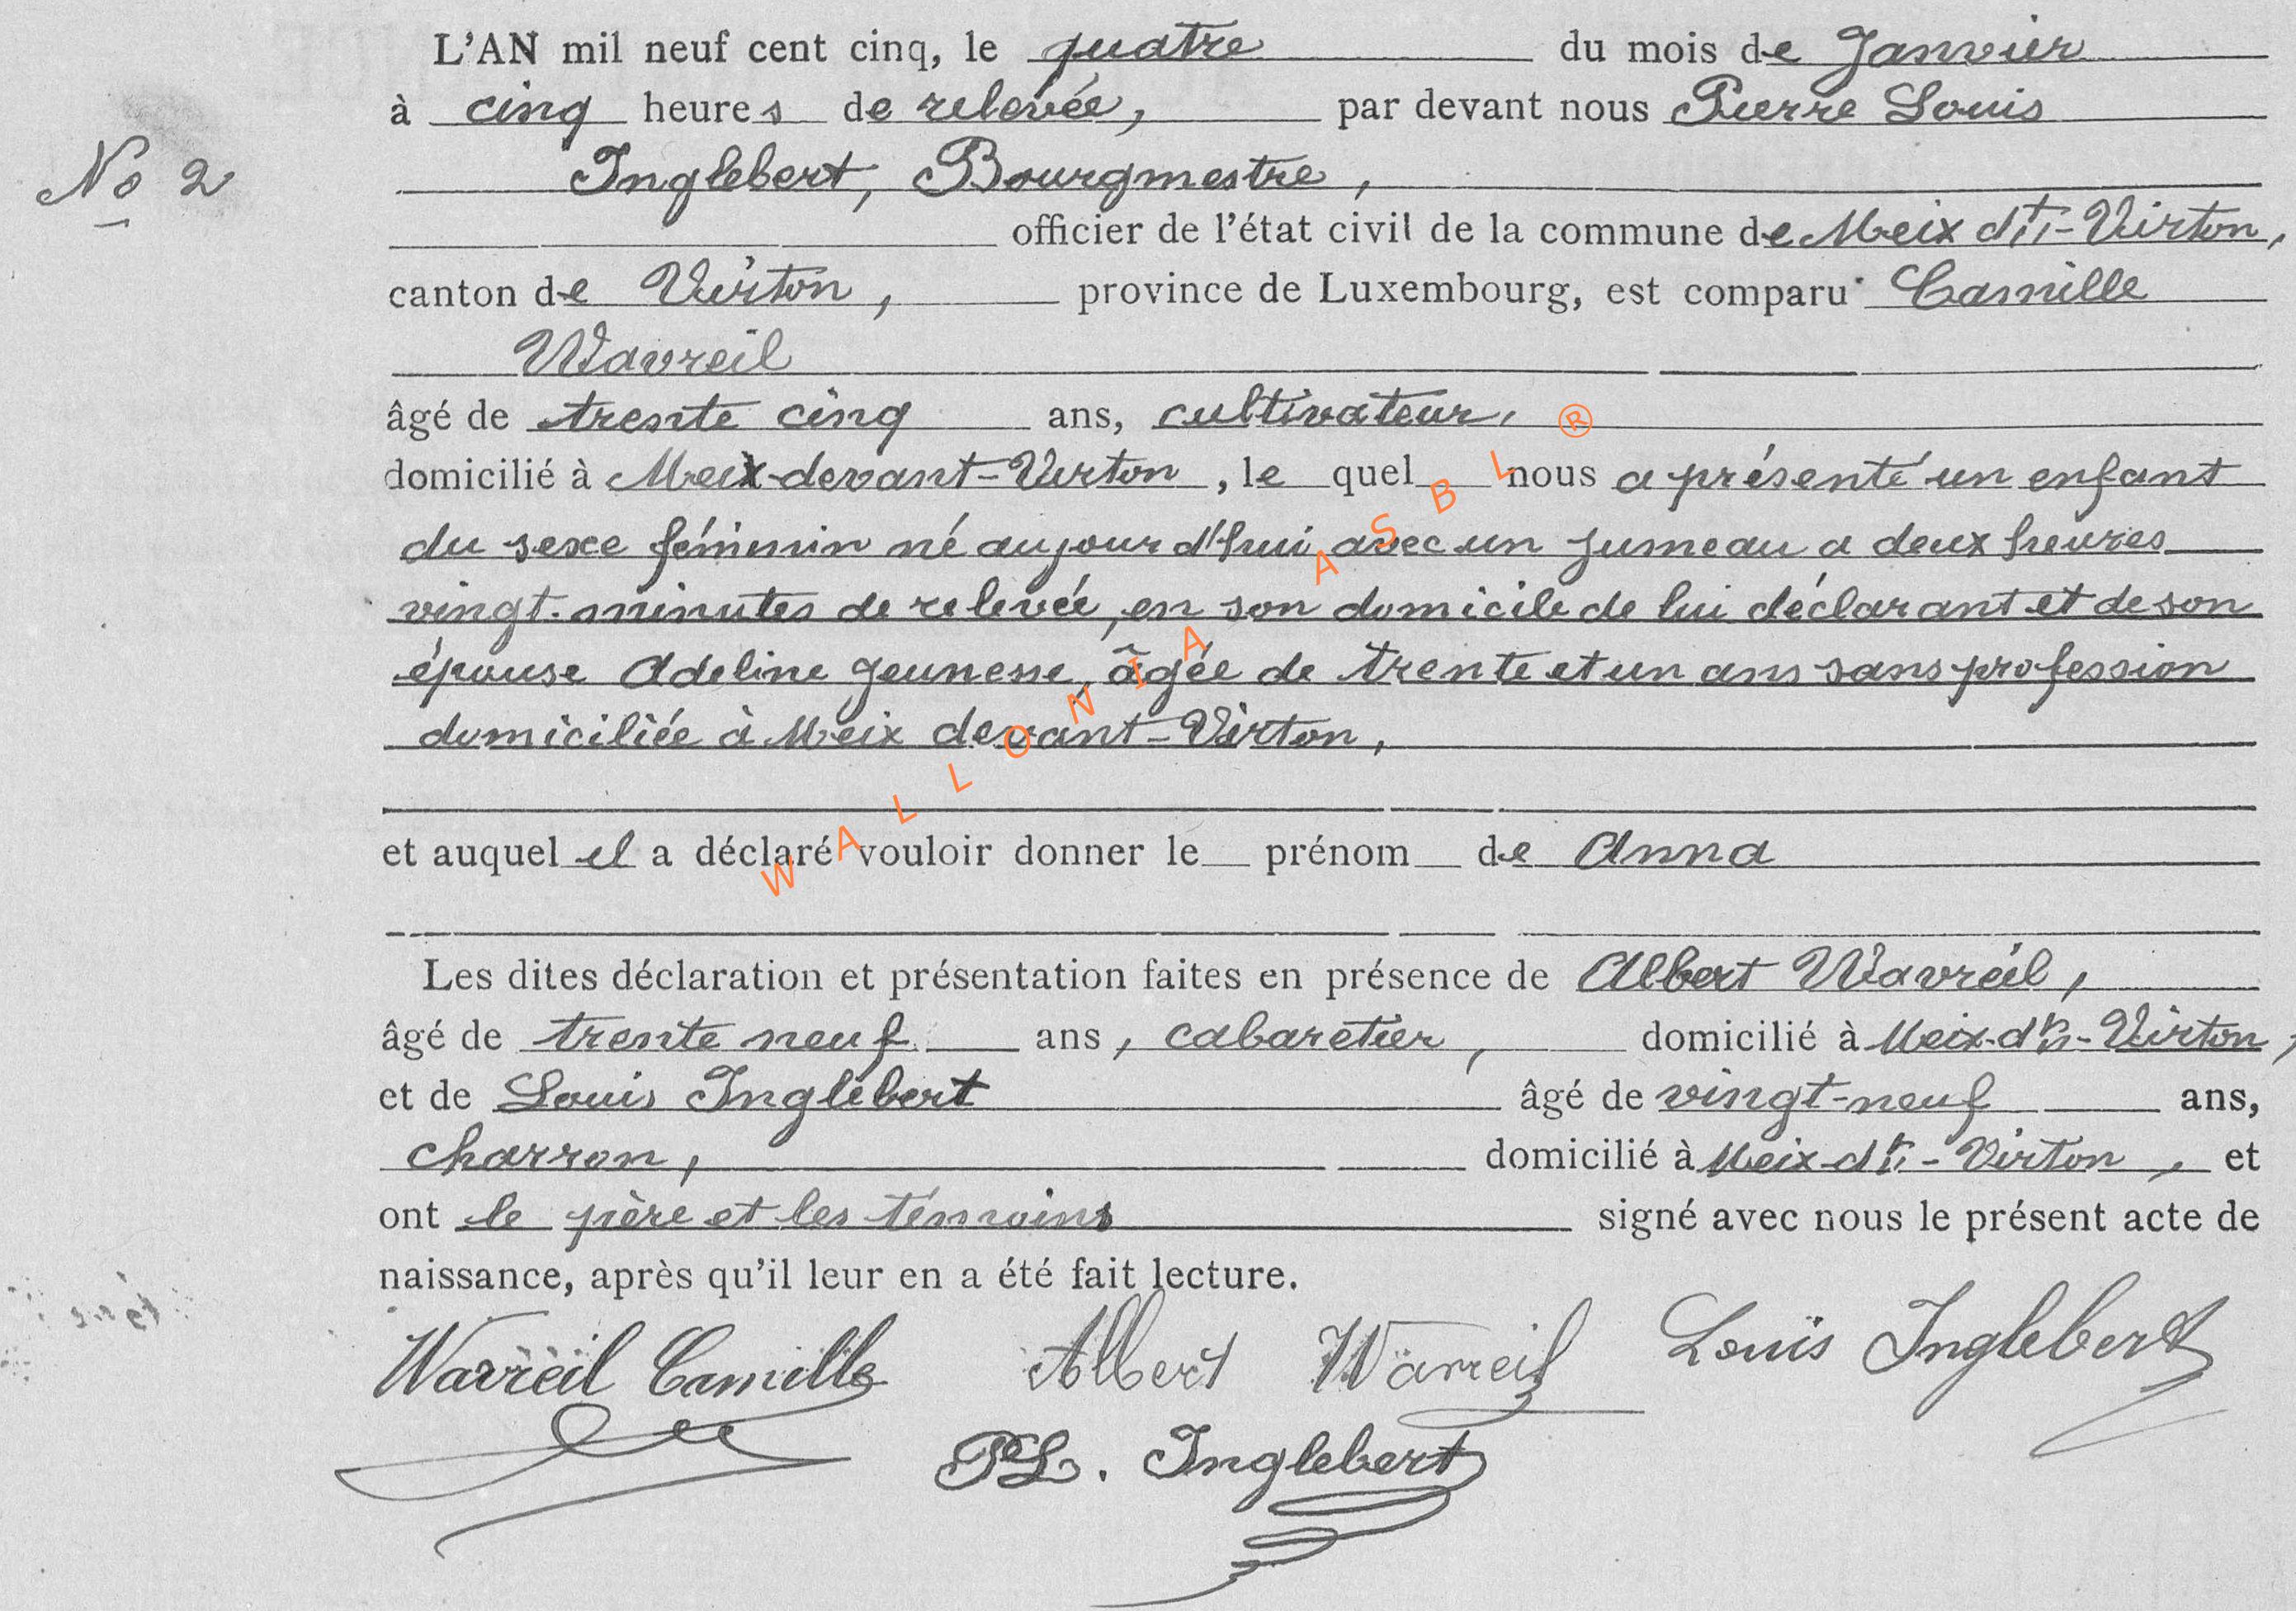 L'AN mil neuf cent cinq, le quatre du mois de Janvier
à cinq heures de relevée, par devant nous Pierre Louis
No 2
Inglebert, Bourgmestre,
officier de l'état civil de la commune de Meix dt-Virton,
canton de Virton, province de Luxembourg, est comparu Camille
Wavreil
âgé de trente cinq ans, cultivateur,
domicilié à Meix-devant-Virton, le quel nous a présenté un enfant
du sexe féminin né aujourd'hui avec un jumeau a deux heures
vingt-minutes de relevée, en son domicile de lui déclarant et de son
épouse Adeline Jeunesse, âgée de trente et un ans sans profession
domiciliée à Meix devant-Virton,
et auquel il a déclaré vouloir donner le prénom de Anna
Les dites déclaration et présentation faites en présence de Albert Wavreil,
âgé de trente neuf ans, cabaretier, domicilié à Meix-dt-Virton,
et de Louis Inglebert âgé de vingt-neuf ans,
charron, domicilié à Meix-dt-Virton, et
ont le père et les témoins signé avec nous le présent acte de
naissance, après qu'il leur en a été fait lecture.
Wavreil Camille Albert Wavreil Louis Inglebert
PL. Inglebert
WALLONIA ASBL ®